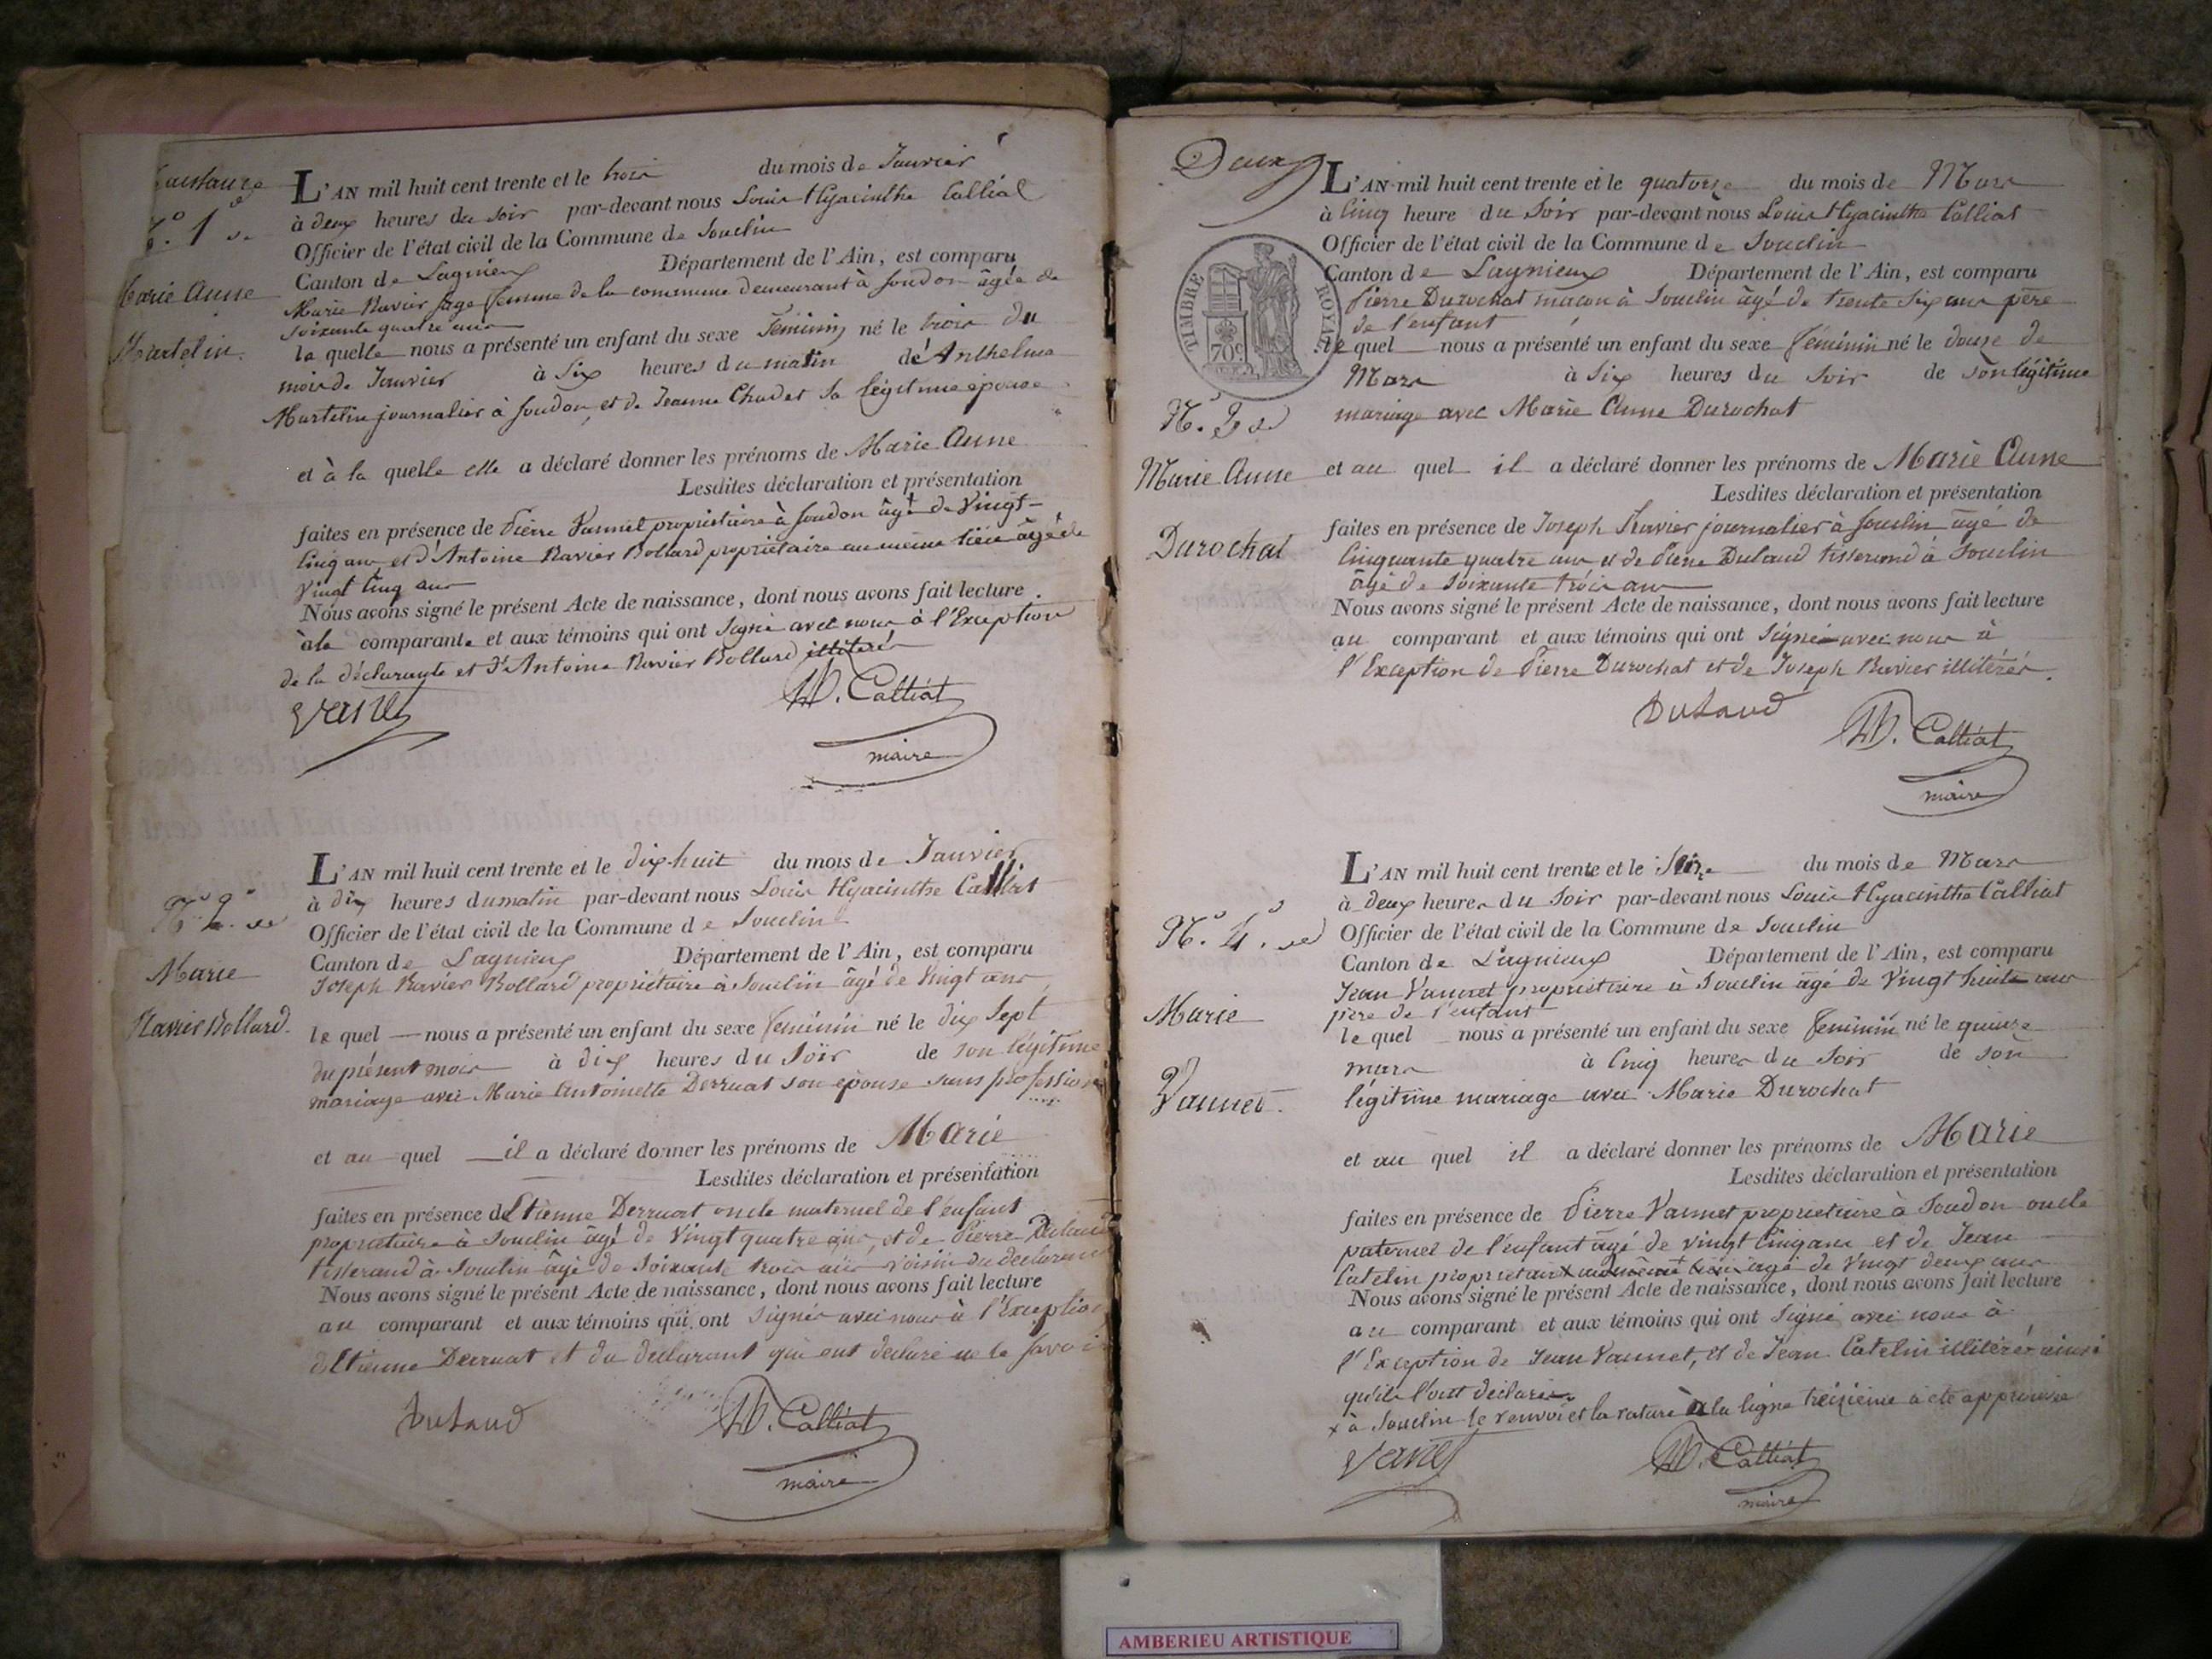 Naissance
N.° 1.er
Marie Anne
Martelin.
L'AN mil huit cent trente et le trois du mois de Janvier
à deux heures du soir par-devant nous Louis Hyacinthe Calliat
Officier de l'état civil de la Commune de Souclin
Canton de Lagnieux Département de l'Ain, est comparu
Marie Ravier sage femme de la commune demeurant à Soudon âgée de
soixante quatre ans
la quelle nous a présenté un enfant du sexe féminin né le trois du
mois de Janvier à Six heures du matin de Anthelme
Martelin journalier à Soudon, et de Jeanne Chudet sa légitime épouse
et à la quelle elle a déclaré donner les prénoms de Marie Anne
Lesdites déclaration et présentation
faites en présence de Pierre Vannet propriétaire à Soudon âgé de Vingt-
Cinq ans et d'Antoine Ravier Bollard propriétaire au même lieu âgé de
Vingt Cinq ans
Nous avons signé le présent Acte de naissance, dont nous avons fait lecture
à la comparante et aux témoins qui ont signé avec nous à l'Exception
de la déclarante et d'Antoine Ravier Bollard illitérés
Vanet
H. Calliat
maire
N.° 2.e
Marie
Ravier Bollard.
L'AN mil huit cent trente et le dix-huit du mois de Janvier
à dix heures du matin par-devant nous Louis Hyacinthe Calliat
Officier de l'état civil de la Commune de Souclin
Canton de Lagnieux Département de l'Ain, est comparu
Joseph Ravier Bollard propriétaire à Souclin âgé de Vingt ans
le quel nous a présenté un enfant du sexe féminin né le dix Sept
du présent mois à dix heures du Soir de son légitime
mariage avec Marie Antoinette Derruat son épouse sans profession
et au quel il a déclaré donner les prénoms de Marie
Lesdites déclaration et présentation
faites en présence d'Etienne Derruat oncle maternel de l'enfant
propriétaire à Souclin âgé de Vingt quatre ans, et de Pierre Dulaud
tisserand à Souclin âgé de Soixante trois ans voisin du déclarant
Nous avons signé le présent Acte de naissance, dont nous avons fait lecture
au comparant et aux témoins qui ont signés avec nous à l'Exception
d'Etienne Derruat et du déclarant qui ont déclaré ne le savoir
Dulaud
H. Calliat
maire
Deux
TIMBRE ROYAL
70 c
N.° 3.e
Marie Anne
Durochat
L'AN mil huit cent trente et le quatorze du mois de Mars
à Cinq heure du Soir par-devant nous Louis Hyacinthe Calliat
Officier de l'état civil de la Commune de Souclin
Canton de Lagnieux Département de l'Ain, est comparu
Pierre Durochat maçon à Souclin âgé de trente Six ans père
de l'enfant
le quel nous a présenté un enfant du sexe féminin né le douze de
Mars à Six heures du Soir de son légitime
mariage avec Marie Anne Durochat
et au quel il a déclaré donner les prénoms de Marie Anne
Lesdites déclaration et présentation
faites en présence de Joseph Ravier journalier à Souclin âgé de
Cinquante quatre ans et de Pierre Dulaud tisserand à Souclin
âgé de Soixante trois ans
Nous avons signé le présent Acte de naissance, dont nous avons fait lecture
au comparant et aux témoins qui ont Signé avec nous à
l'Exception de Pierre Durochat et de Joseph Ravier illitérés.
Dulaud
H. Calliat
maire
N.° 4.e
Marie
Vannet.
L'AN mil huit cent trente et le Seize du mois de Mars
à Deux heures du Soir par-devant nous Louis Hyacinthe Calliat
Officier de l'état civil de la Commune de Souclin
Canton de Lagnieux Département de l'Ain, est comparu
Jean Vannet propriétaire à Souclin âgé de Vingt huit ans
père de l'enfant
le quel nous a présenté un enfant du sexe féminin né le quinze
mars à Cinq heures du Soir de son
légitime mariage avec Marie Durochat
et au quel il a déclaré donner les prénoms de Marie
Lesdites déclaration et présentation
faites en présence de Pierre Vannet propriétaire à Soudon oncle
paternel de l'enfant âgé de vingt Cinq ans et de Jean
Catelin propriétaire x au même lieu âgé de Vingt deux ans
Nous avons signé le présent Acte de naissance, dont nous avons fait lecture
au comparant et aux témoins qui ont Signé avec nous à
l'Exception de Jean Vannet, et de Jean Catelin illitérés ainsi
qu'ils l'ont déclarés
x à Souclin le renvoi et la rature à la ligne treizième a été approuvée
Vanet
H. Calliat
maire
AMBERIEU ARTISTIQUE